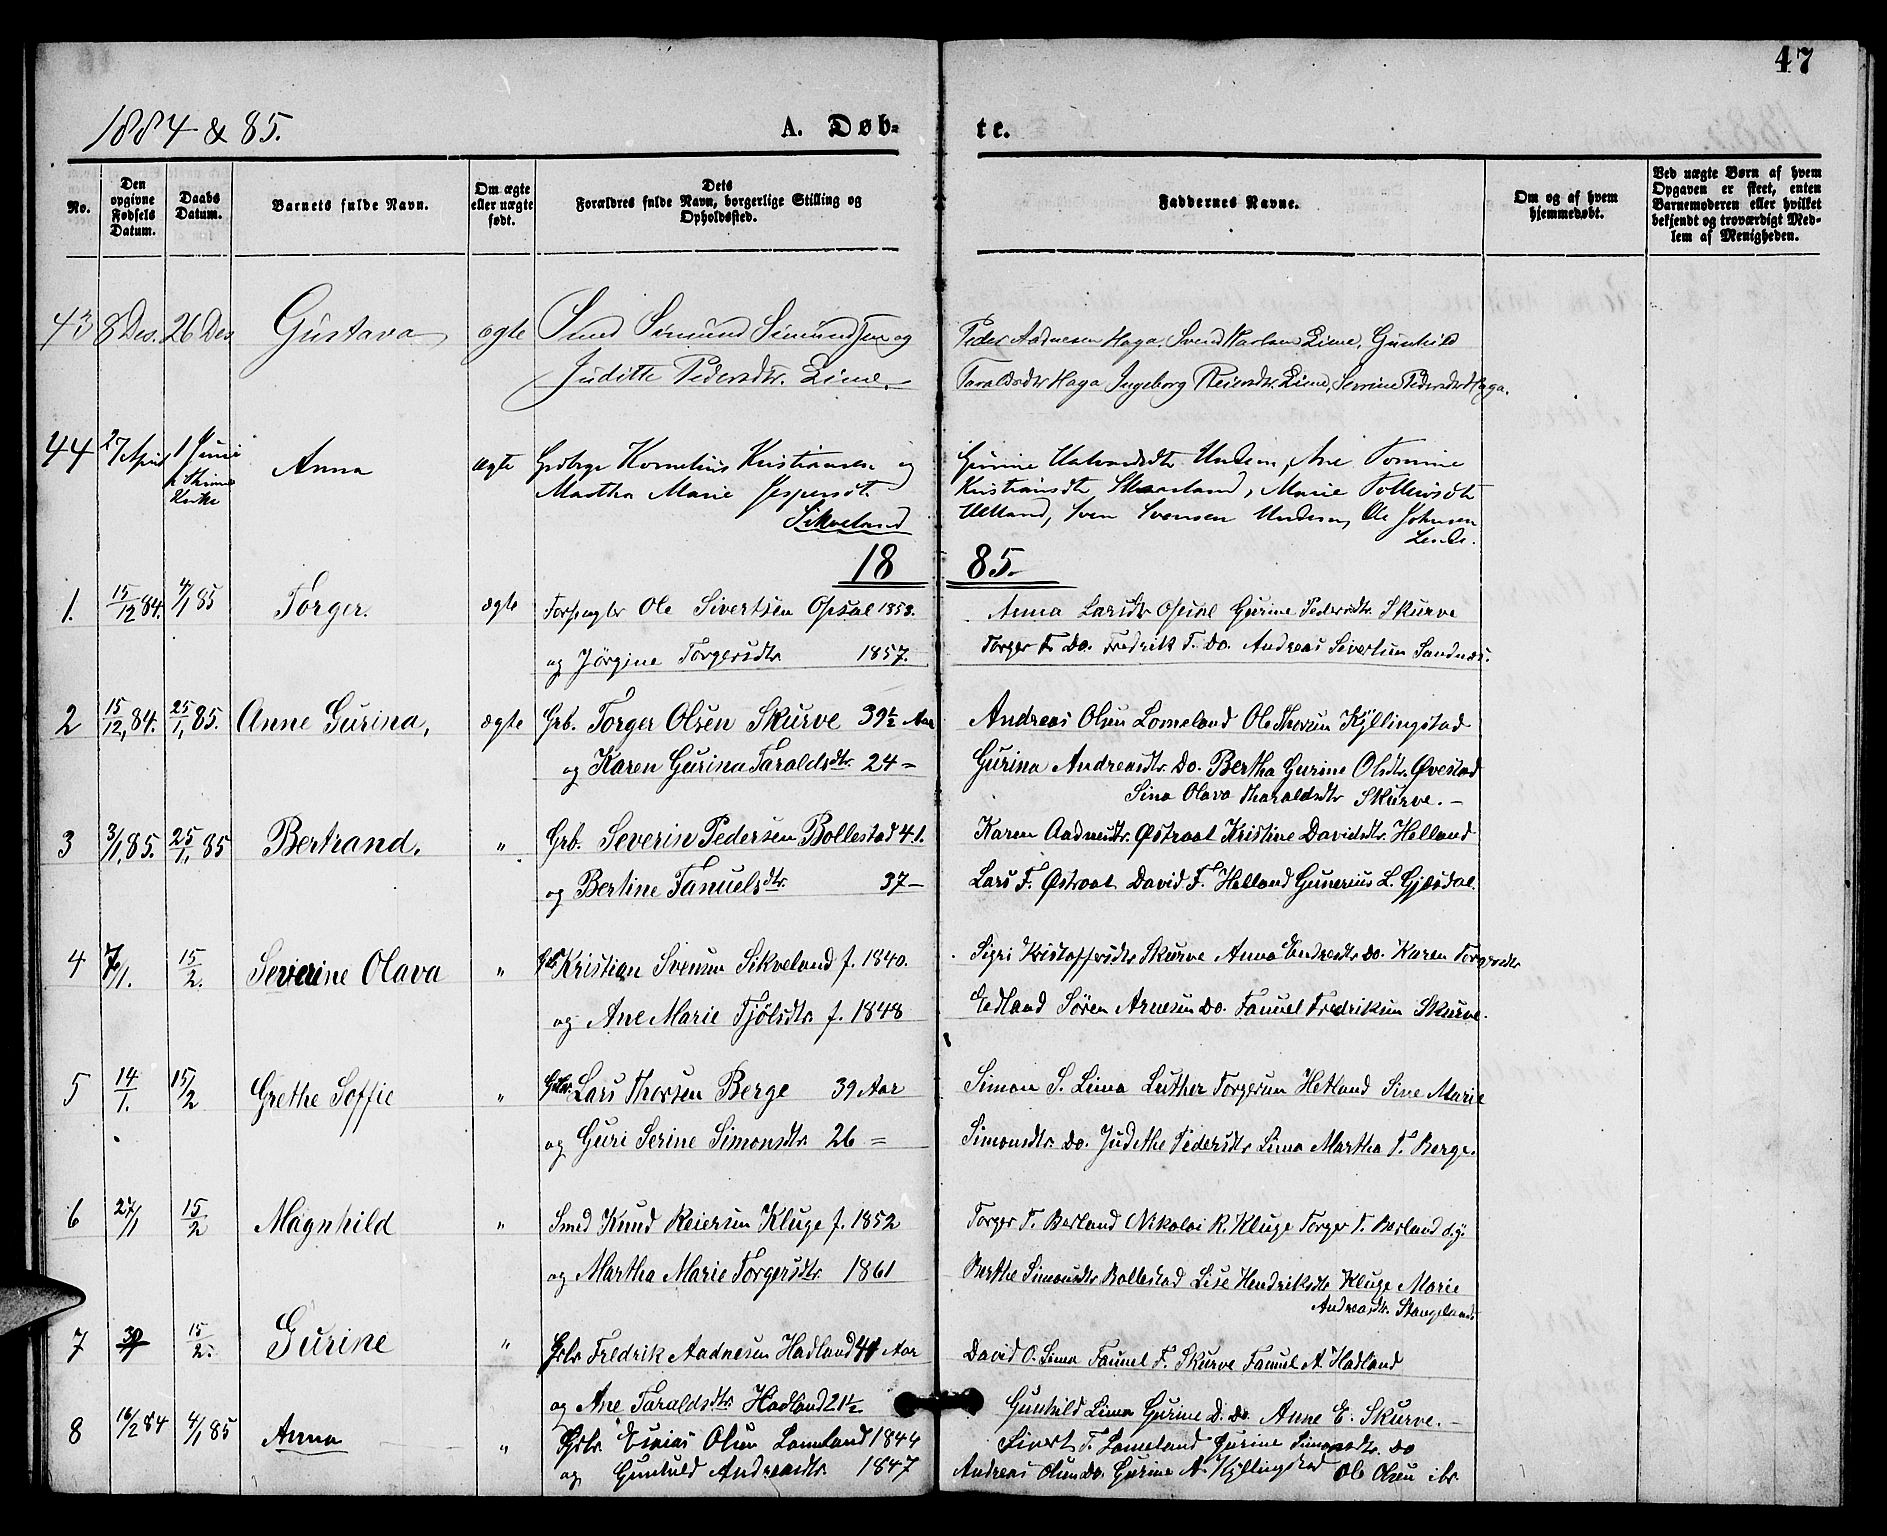 47
1884 & 85.
A. Døb-
te.
No.
Den opgivne Fødsels Datum.
Daabs Datum.
Barnets fulde Navn.
Om ægte eller uægte født.
Dets Forældres fulde Navn, borgerlige Stilling og Opholdssted.
Faddernes Navne.
Om og af hvem hjemmedøbt.
Ved uægte Børn af hvem Opgaven er skeet, enten Barnemoderen eller hvilket bekjendt og troværdigt Medlem af Menigheden.
43 8 Des. 26 Des Gustava ægte Smed Simund Simundsen og
Juditte Pedersdtr. Lime.
Peder Aadnesen Haga, Svend Karlsen Lime, Gunhild
Taraldsdtr Haga Ingeborg Reiersdtr. Lime, Serine Pedersdtr Haga.
44 27 April 1 Juni Anna ægte Kornelius Kristiansen og
Martha Marie Jespersdt.
Sikveland
Gurine Undem, Ane Tomine
Kristiansdt Skaarland, Marie
Helland, Sven Svensen Undem, Ole Johnsen
Lende.
18 85.
1. 15/12 84. 4/1 85 Torger. ægte Ole Sivertsen Opsal 1853.
og Jörgine Torgersdtr 1857.
Anna Larsdtr Opsal Gurine Pedersdtr Skurve
Torger T. Do. Fredrik T. Do. Andreas Sivertsen Sandnæs.
2 15/12, 84. 25/1, 85. Anne Gurina, ægte Grb. Torger Olsen Skurve 39½ Aar
og Karen Gurina Taraldsdtr. 24 –
Andreas Olsen Lomeland Ole Thorsen Kyllingstad
Gurina Andreasdtr. Do. Bertha Gurine Olsdtr. Øvestad
Sina Olava Tharaldsdtr Skurve. –
3 3/1, 85. 25/1, 85 Bertrand. " Grb. Severin Pedersen Bollestad 41.
og Bertine Tanuelsdtr. 37 –
Karen Aadnesdtr. Østraat Kristine Davidsdtr. Helland
Lars F. Østraat David F. Helland Gunerius L. Gjesdal.
4 7/1. 15/2. Severine Olava " Kristian Svensen Sikveland f. 1840.
og Ane Marie Fjölsdtr. f. 1848
Sigri Kristoffersdtr Skurve Anna Endresdtr Do. Karen Torgersdtr
Eedland Søren Arnesen Do. Tanuel Fredriksen Skurve.
5 14/1. 15/2 Grethe Soffie " Lars Thorsen Berge 39 Aar
og Guri Serine Simonsdtr. 26 =
Simon S. Lima Luther Torgersen Hetland Sine Marie
Simonsdtr. Do. Judithe Pedersdtr Lima Martha T. Berge.
6 27/1 15/2 Magnhild " Smed Knud Reiersen Kluge f. 1852
og Martha Marie Torgersdtr. 1861
Torger T. Berland Nikolai R. Kluge Torger T. Berland d.y.
Berthe Simonsdtr Bollestad Lise Hendriksdtr Kluge Marie
Andreasdtr. Stangeland
7 15/2. Gurine " Grbr Fredrik Aadnesen Hadland 41 Aar
og Ane Taraldsdtr. Hadland 21½
David O. Lima Tanuel F. Skurve Tanuel A. Hadland
Gunhild Lima Gurine D. do. Anne E. Skurve. –
8 16/2 84 4/1 85 Anna " Grbr Esaias Olsen Lomeland 1844
og Gunhild Andreasdtr. 1847
Sivert T. Lomeland Gurine Simonsdtr. Do
Andreas Olsen Do. Gurine A. Kyllingstad Ole Olsen ibr